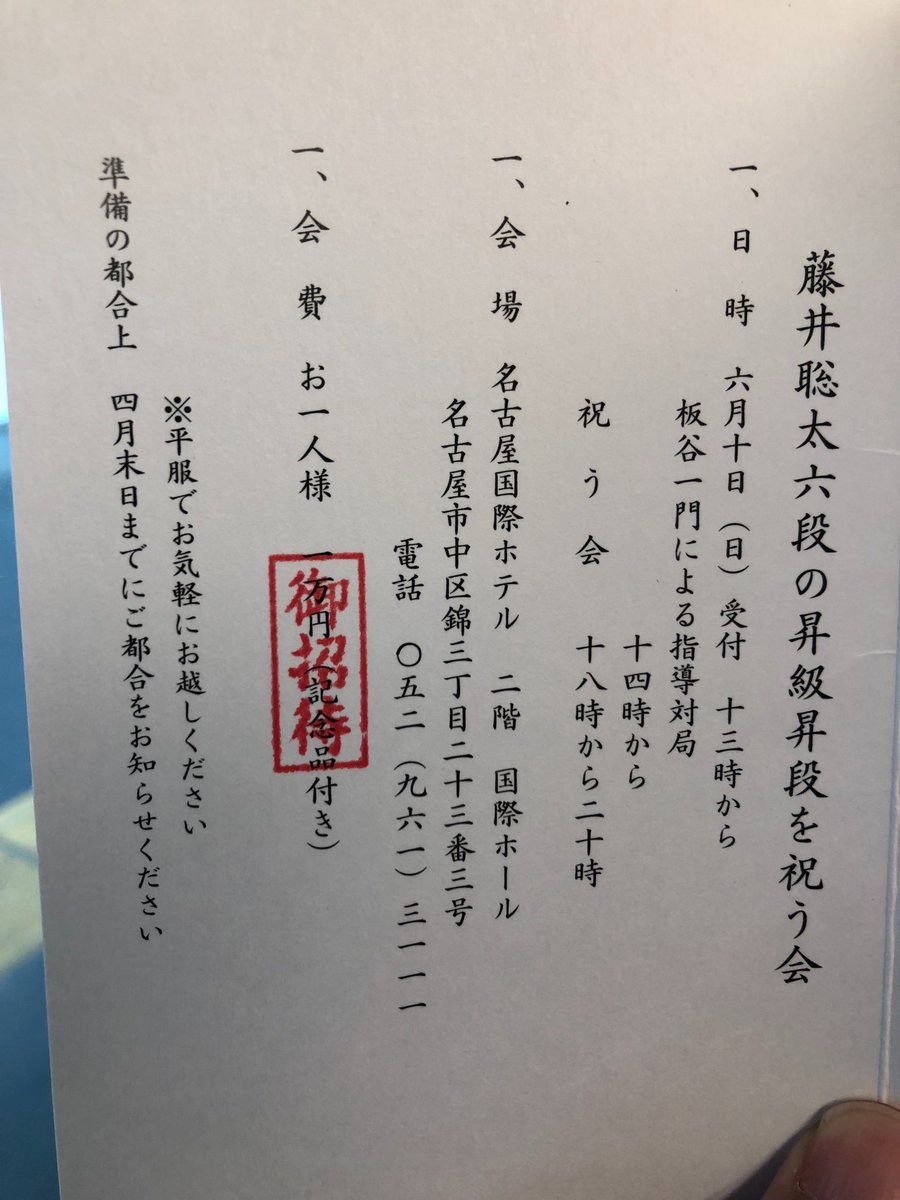 藤井聡太六段の昇級昇段を祝う会
一、日 時 六月十日（日）受付 十三時から
板谷一門による指導対局
十四時から
祝 う 会 十八時から二十時
一、会 場 名古屋国際ホテル 二階 国際ホール
名古屋市中区錦三丁目二十三番三号
電話 〇五二（九六一）三一一一
一、会 費 お一人様 一万円（記念品付き）
御招待
※平服でお気軽にお越しください
準備の都合上 四月末日までにご都合をお知らせください